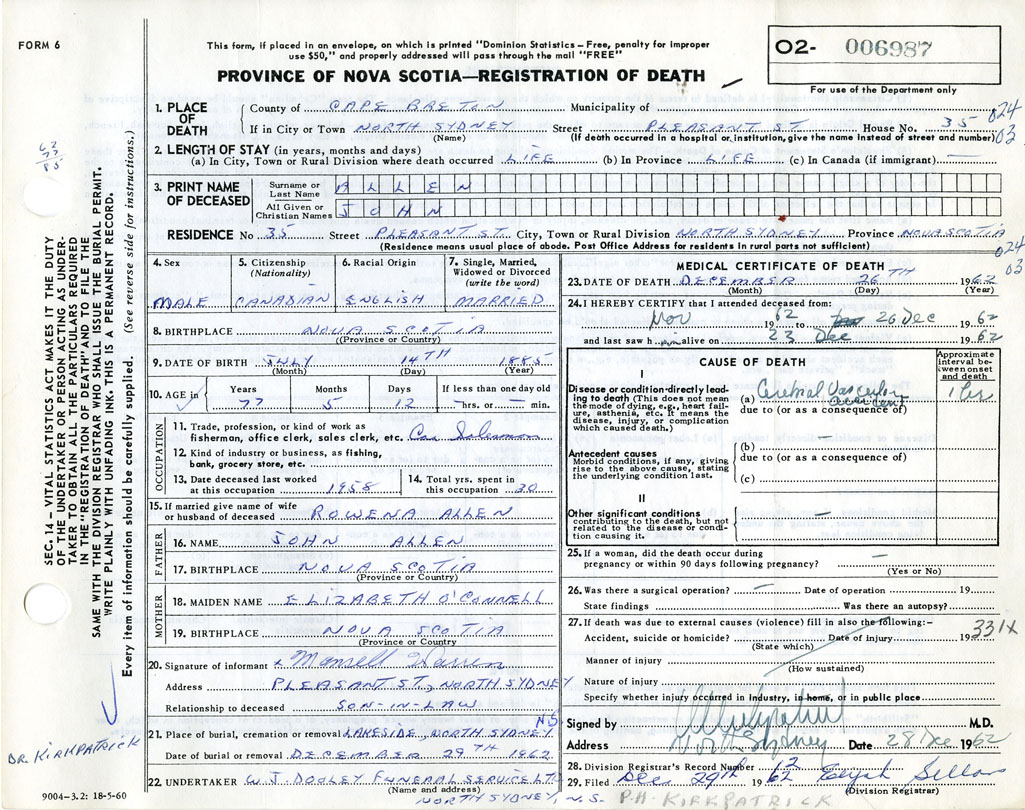 FORM 6
This form, if placed in an envelope, on which is printed "Dominion Statistics – Free, penalty for improper
use $50," and properly addressed will pass through the mail "FREE"
O2- 006987
PROVINCE OF NOVA SCOTIA—REGISTRATION OF DEATH
For use of the Department only
1. PLACE OF DEATH
County of CAPE BRETON Municipality of
If in City or Town NORTH SYDNEY Street PLEASANT ST House No. 35
(Name) (If death occurred in a hospital or institution, give the name instead of street and number)
024
03
2. LENGTH OF STAY (in years, months and days)
(a) In City, Town or Rural Division where death occurred LIFE (b) In Province LIFE (c) In Canada (if immigrant) —
3. PRINT NAME OF DECEASED
Surname or Last Name ALLEN
All Given or Christian Names JOHN
RESIDENCE No 35 Street PLEASANT ST City, Town or Rural Division NORTH SYDNEY Province NOVA SCOTIA
(Residence means usual place of abode. Post Office Address for residents in rural parts not sufficient)
024
03
4. Sex
MALE
5. Citizenship
(Nationality)
CANADIAN
6. Racial Origin
ENGLISH
7. Single, Married,
Widowed or Divorced
(write the word)
MARRIED
8. BIRTHPLACE NOVA SCOTIA
(Province or Country)
9. DATE OF BIRTH JULY 14TH 1885
(Month) (Day) (Year)
10. AGE in
Years Months Days If less than one day old
77 5 12 – hrs. or – min.
OCCUPATION
11. Trade, profession, or kind of work as
fisherman, office clerk, sales clerk, etc. Car Salesman
12. Kind of industry or business, as fishing,
bank, grocery store, etc.
13. Date deceased last worked
at this occupation 1958
14. Total yrs. spent in
this occupation 30
15. If married give name of wife
or husband of deceased ROWENA ALLEN
FATHER
16. NAME JOHN ALLEN
17. BIRTHPLACE NOVA SCOTIA
(Province or Country)
MOTHER
18. MAIDEN NAME ELIZABETH O'CONNELL
19. BIRTHPLACE NOVA SCOTIA
(Province or Country)
20. Signature of informant x Mansell Warren
Address PLEASANT ST., NORTH SYDNEY
Relationship to deceased SON-IN-LAW
N.S.
21. Place of burial, cremation or removal LAKESIDE, NORTH SYDNEY
Date of burial or removal DECEMBER 29TH 1962
22. UNDERTAKER W.J. DOOLEY FUNERAL SERVICE LTD
(Name and address)
NORTH SYDNEY, N.S.
MEDICAL CERTIFICATE OF DEATH
23. DATE OF DEATH DECEMBER 26TH 1962
(Month) (Day) (Year)
24. I HEREBY CERTIFY that I attended deceased from:
Nov 1962 to 26 Dec 1962
and last saw him alive on 23 Dec 1962
CAUSE OF DEATH
Approximate interval between onset and death
I
Disease or condition directly leading to death (This does not mean the mode of dying, e.g., heart failure, asthenia, etc. It means the disease, injury, or complication which caused death.)
(a) Cerebral Vascular accident
due to (or as a consequence of)
Antecedent causes
Morbid conditions, if any, giving rise to the above cause, stating the underlying condition last.
(b) —
due to (or as a consequence of)
(c)
II
Other significant conditions
contributing to the death, but not related to the disease or condition causing it.
—
25. If a woman, did the death occur during
pregnancy or within 90 days following pregnancy? —
(Yes or No)
26. Was there a surgical operation? – Date of operation 19
State findings Was there an autopsy?
27. If death was due to external causes (violence) fill in also the following:–
Accident, suicide or homicide? Date of injury 19
(State which)
331X
Manner of injury
(How sustained)
Nature of injury
Specify whether injury occurred in industry, in home, or in public place
Signed by PH Kirkpatrick M.D.
Address North Sydney Date 28 Dec 1962
28. Division Registrar's Record Number 12
29. Filed Dec 29th 1962
(Division Registrar)
P.H. KIRKPATRICK
SEC. 14 – VITAL STATISTICS ACT MAKES IT THE DUTY
OF THE UNDERTAKER OR PERSON ACTING AS UNDER-
TAKER TO OBTAIN ALL THE PARTICULARS REQUIRED
IN THE "REGISTRATION OF DEATH" AND TO FILE THE
SAME WITH THE DIVISION REGISTRAR WHO SHALL ISSUE THE BURIAL PERMIT.
WRITE PLAINLY WITH UNFADING INK. THIS IS A PERMANENT RECORD.
Every item of information should be carefully supplied. (See reverse side for instructions.)
DR. KIRKPATRICK
9004-3.2: 18-5-60